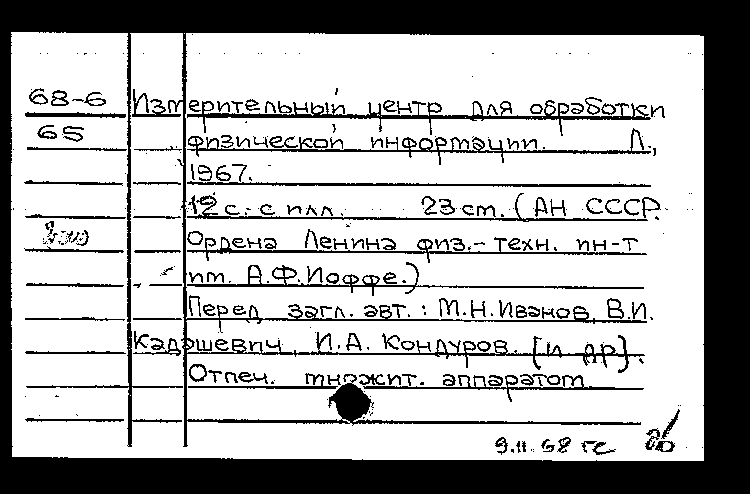 68-6 Измерительный центр для обработки
65 физической информации. Л.,
1967.
12 с. с илл. 23 см. (АН СССР.
Ордена Ленина физ.-техн. ин-т
им. А.Ф.Иоффе.)
Перед загл. авт.: М.Н.Иванов, В.И.
Кадашевич, И.А. Кондуров. [и др].
Отпеч. множит. аппаратом.
9.11.68 гс